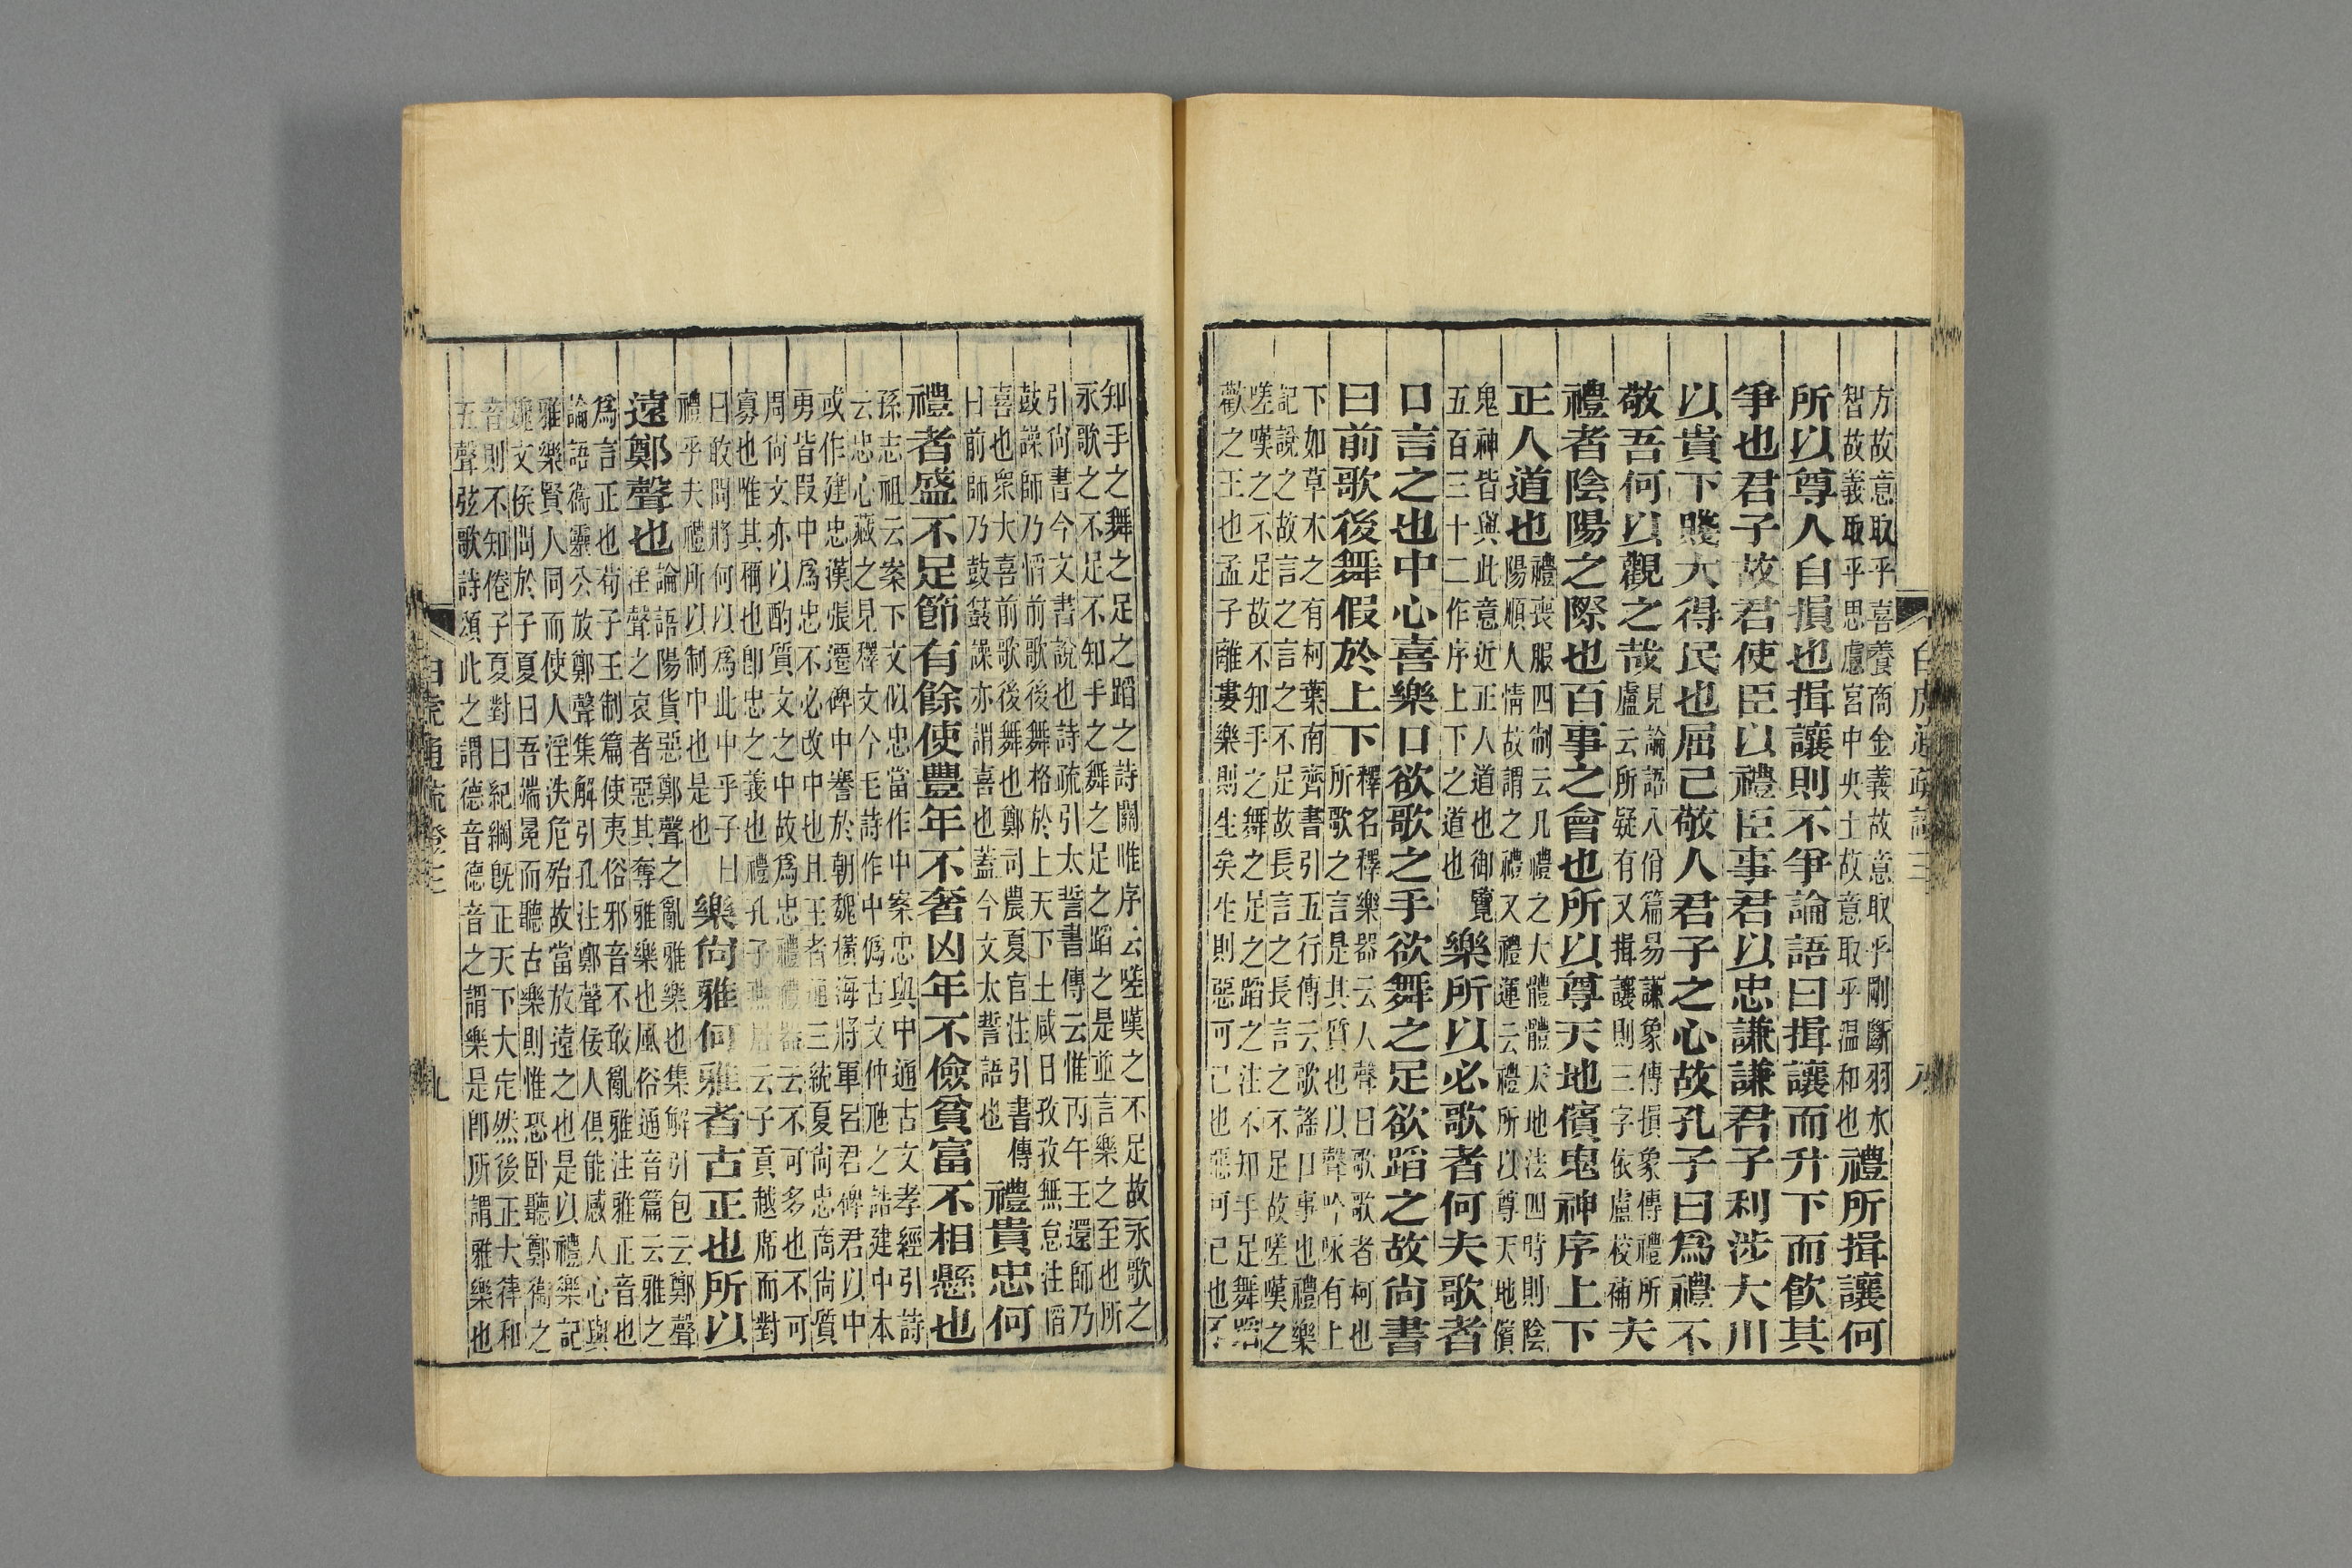 方故意取乎喜養商金義故意取乎剛斷羽水
智故義取乎思慮宮中央土故意取乎温和也
禮所揖讓何
所以尊人自損也揖讓則不爭論語曰揖讓而升下而飲其
爭也君子故君使臣以禮臣事君以忠謙謙君子利涉大川
以貴下賤大得民也屈己敬人君子之心故孔子曰爲禮不
敬吾何以觀之哉
見論語八佾篇易謙象傳損象傳禮所
盧云所疑有又揖讓則三字依盧校補
夫
禮者陰陽之際也百事之會也所以尊天地儐鬼神序上下
正人道也
禮喪服四制云凡禮之大體體天地法四時則陰
陽順人情故謂之禮又禮運云禮所以尊天地儐
鬼神皆與此意近正人道也御覽
五百三十二作序上下之道也
樂所以必歌者何夫歌者
口言之也中心喜樂口欲歌之手欲舞之足欲蹈之故尙書
曰前歌後舞假於上下
釋名釋樂器云人聲曰歌歌者柯也
所歌之言是其質也以聲吟咏有上
下如草木之有柯葉南齊書引五行傳云歌謠口事也禮樂
記說之故言之言之不足故長言之長言之不足故嗟嘆之
嗟嘆之不足故不知手之舞之足之蹈之注不知手足舞蹈
歡之王也孟子離婁樂則生矣生則惡可已也惡可已也不
知手之舞之足之蹈之詩關雎序云嗟嘆之不足故永歌之
永歌之不足不知手之舞之足之蹈之是並言樂之至也所
引尙書今文書說也詩疏引太誓書傳云惟丙午王還師乃
鼓譟師乃慆前歌後舞格於上天下土咸曰孜孜無怠注慆
喜也衆大喜前歌後舞也鄭司農夏官注引書傳
曰前師乃鼓鼖譟亦謂喜也蓋今文太誓語也
禮貴忠何
禮者盛不足節有餘使豐年不奢凶年不儉貧富不相懸也
孫志祖云案下文似忠當作中案忠與中通古文孝經引詩
云忠心藏之見釋文今毛詩作中僞古文仲虺之誥建中本
或作建忠漢張遷碑中謇於朝魏橫海將軍呂君碑君以中
勇皆叚中爲忠不必改中也且王者通三統夏尙忠商尙質
周尙文亦以酌質文之中故爲忠禮禮器云不可多也不可
寡也唯其稱也卽忠之義也禮孔子燕居云子貢越席而對
曰敢問將何以爲此中乎子曰
禮乎夫禮所以制中也是也
樂尙雅何雅者古正也所以
遠鄭聲也
論語陽貨惡鄭聲之亂雅樂也集解引包云鄭聲
淫聲之哀者惡其奪雅樂也風俗通音篇云雅之
爲言正也荀子王制篇使夷俗邪音不敢亂雅注雅正音也
論語衞靈公放鄭聲集解引孔注鄭聲佞人俱能感人心與
雅樂賢人同而使人淫泆危殆故當放遠之也是以禮樂記
魏文侯問於子夏曰吾端冕而聽古樂則惟恐臥聽鄭衞之
音則不知倦子夏對曰紀綱旣正天下大定然後正大律和
五聲弦歌詩頌此之謂德音德音之謂樂是卽所謂雅樂也